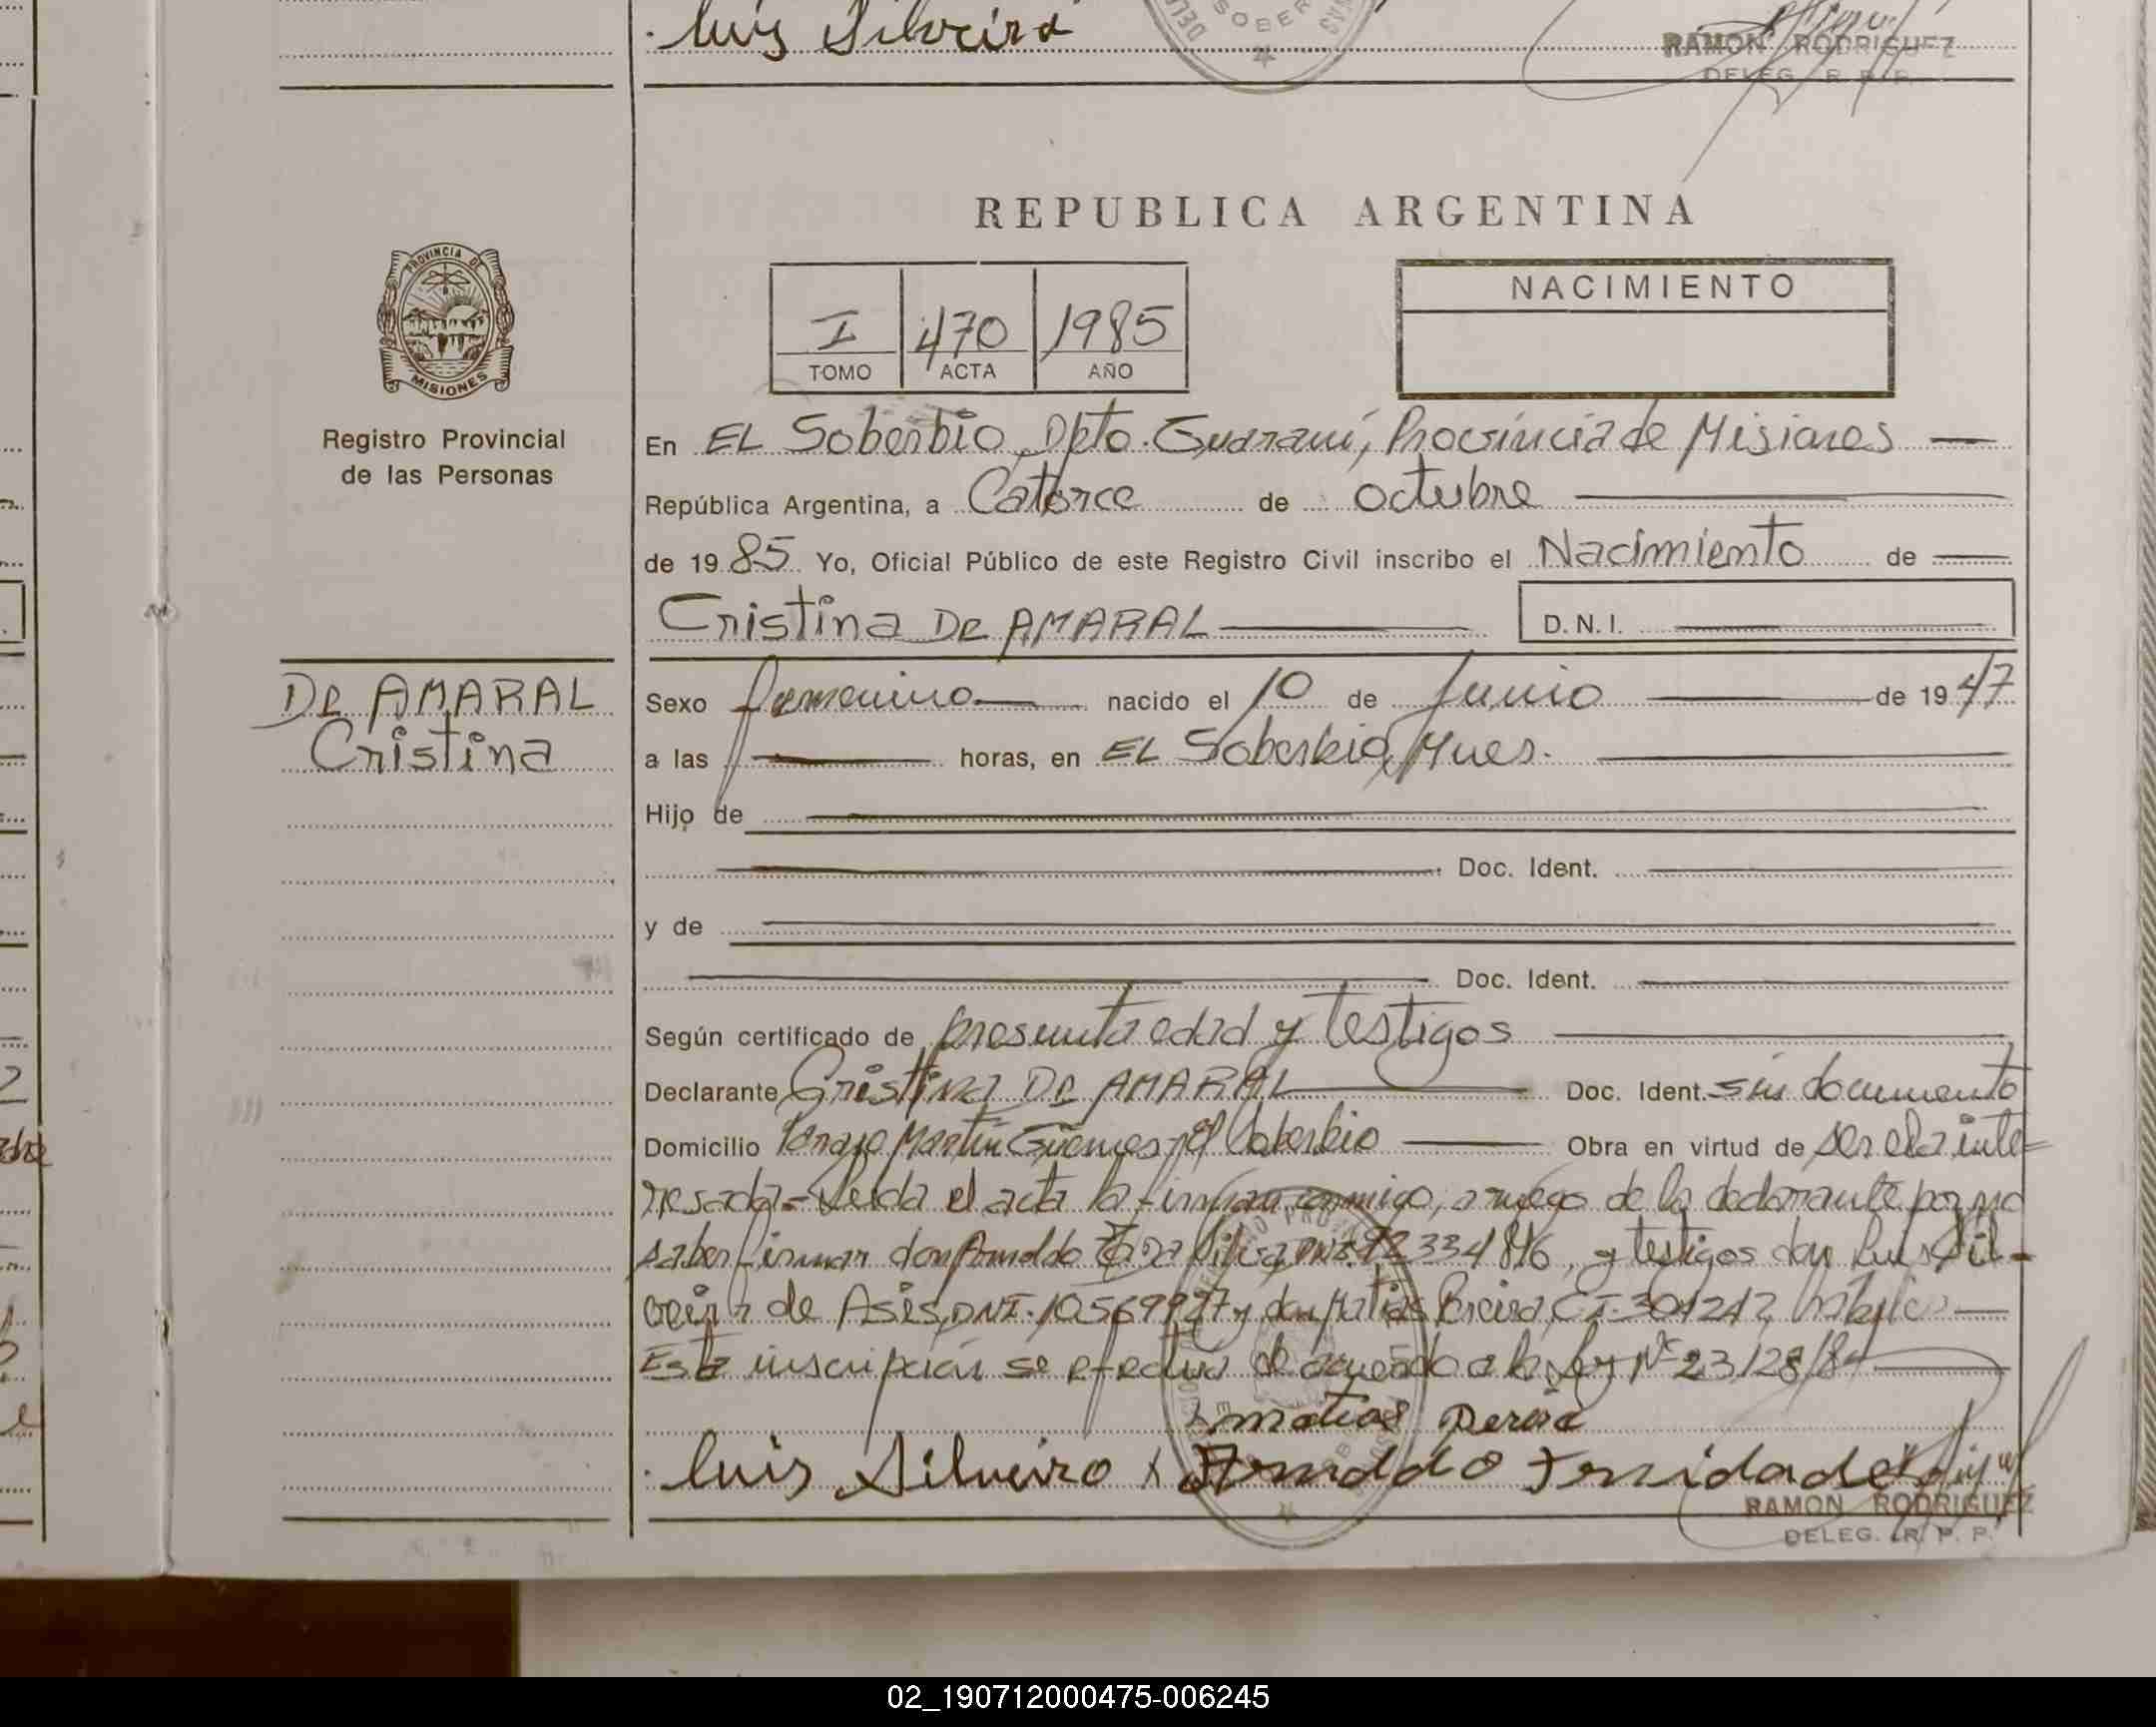 . Luis Silveira
RAMON RODRIGUEZ
DELEG. R. P. P.
REPUBLICA ARGENTINA
PROVINCIA DE
MISIONES
Registro Provincial
de las Personas
I 470 1985
TOMO ACTA AÑO
NACIMIENTO
En EL Soberbio, Dpto. Guaraní, Provincia de Misiones
República Argentina, a Catorce de octubre
de 1985 Yo, Oficial Público de este Registro Civil inscribo el Nacimiento de
Cristina De AMARAL
D.N.I.
De AMARAL
Cristina
Sexo femenino nacido el 10 de Junio de 1947
a las horas, en EL Soberbio, Mnes.
Hijo de
Doc. Ident.
y de
Doc. Ident.
Según certificado de presunta edad y testigos
Declarante Cristina De AMARAL Doc. Ident. sin documento
Domicilio Paraje Martín Güemes, El Soberbio Obra en virtud de ser ela inte-
resada= Leida el acta la firman conmigo, a ruego de la declarante por no
saber firmar don Arnoldo Da Silva, DNI. 92334816, y testigos don Luis Sil-
veira de Asis, DNI. 10569927 y don Matias Pereira, CI. 301242, habiles
Esta inscripción se efectua de acuerdo a la Ley Nº 23128/84
matias Pereira
. Luis Silveira x Arnoldo Trenidade
RAMON RODRIGUEZ
DELEG. R. P. P.
02_190712000475-006245